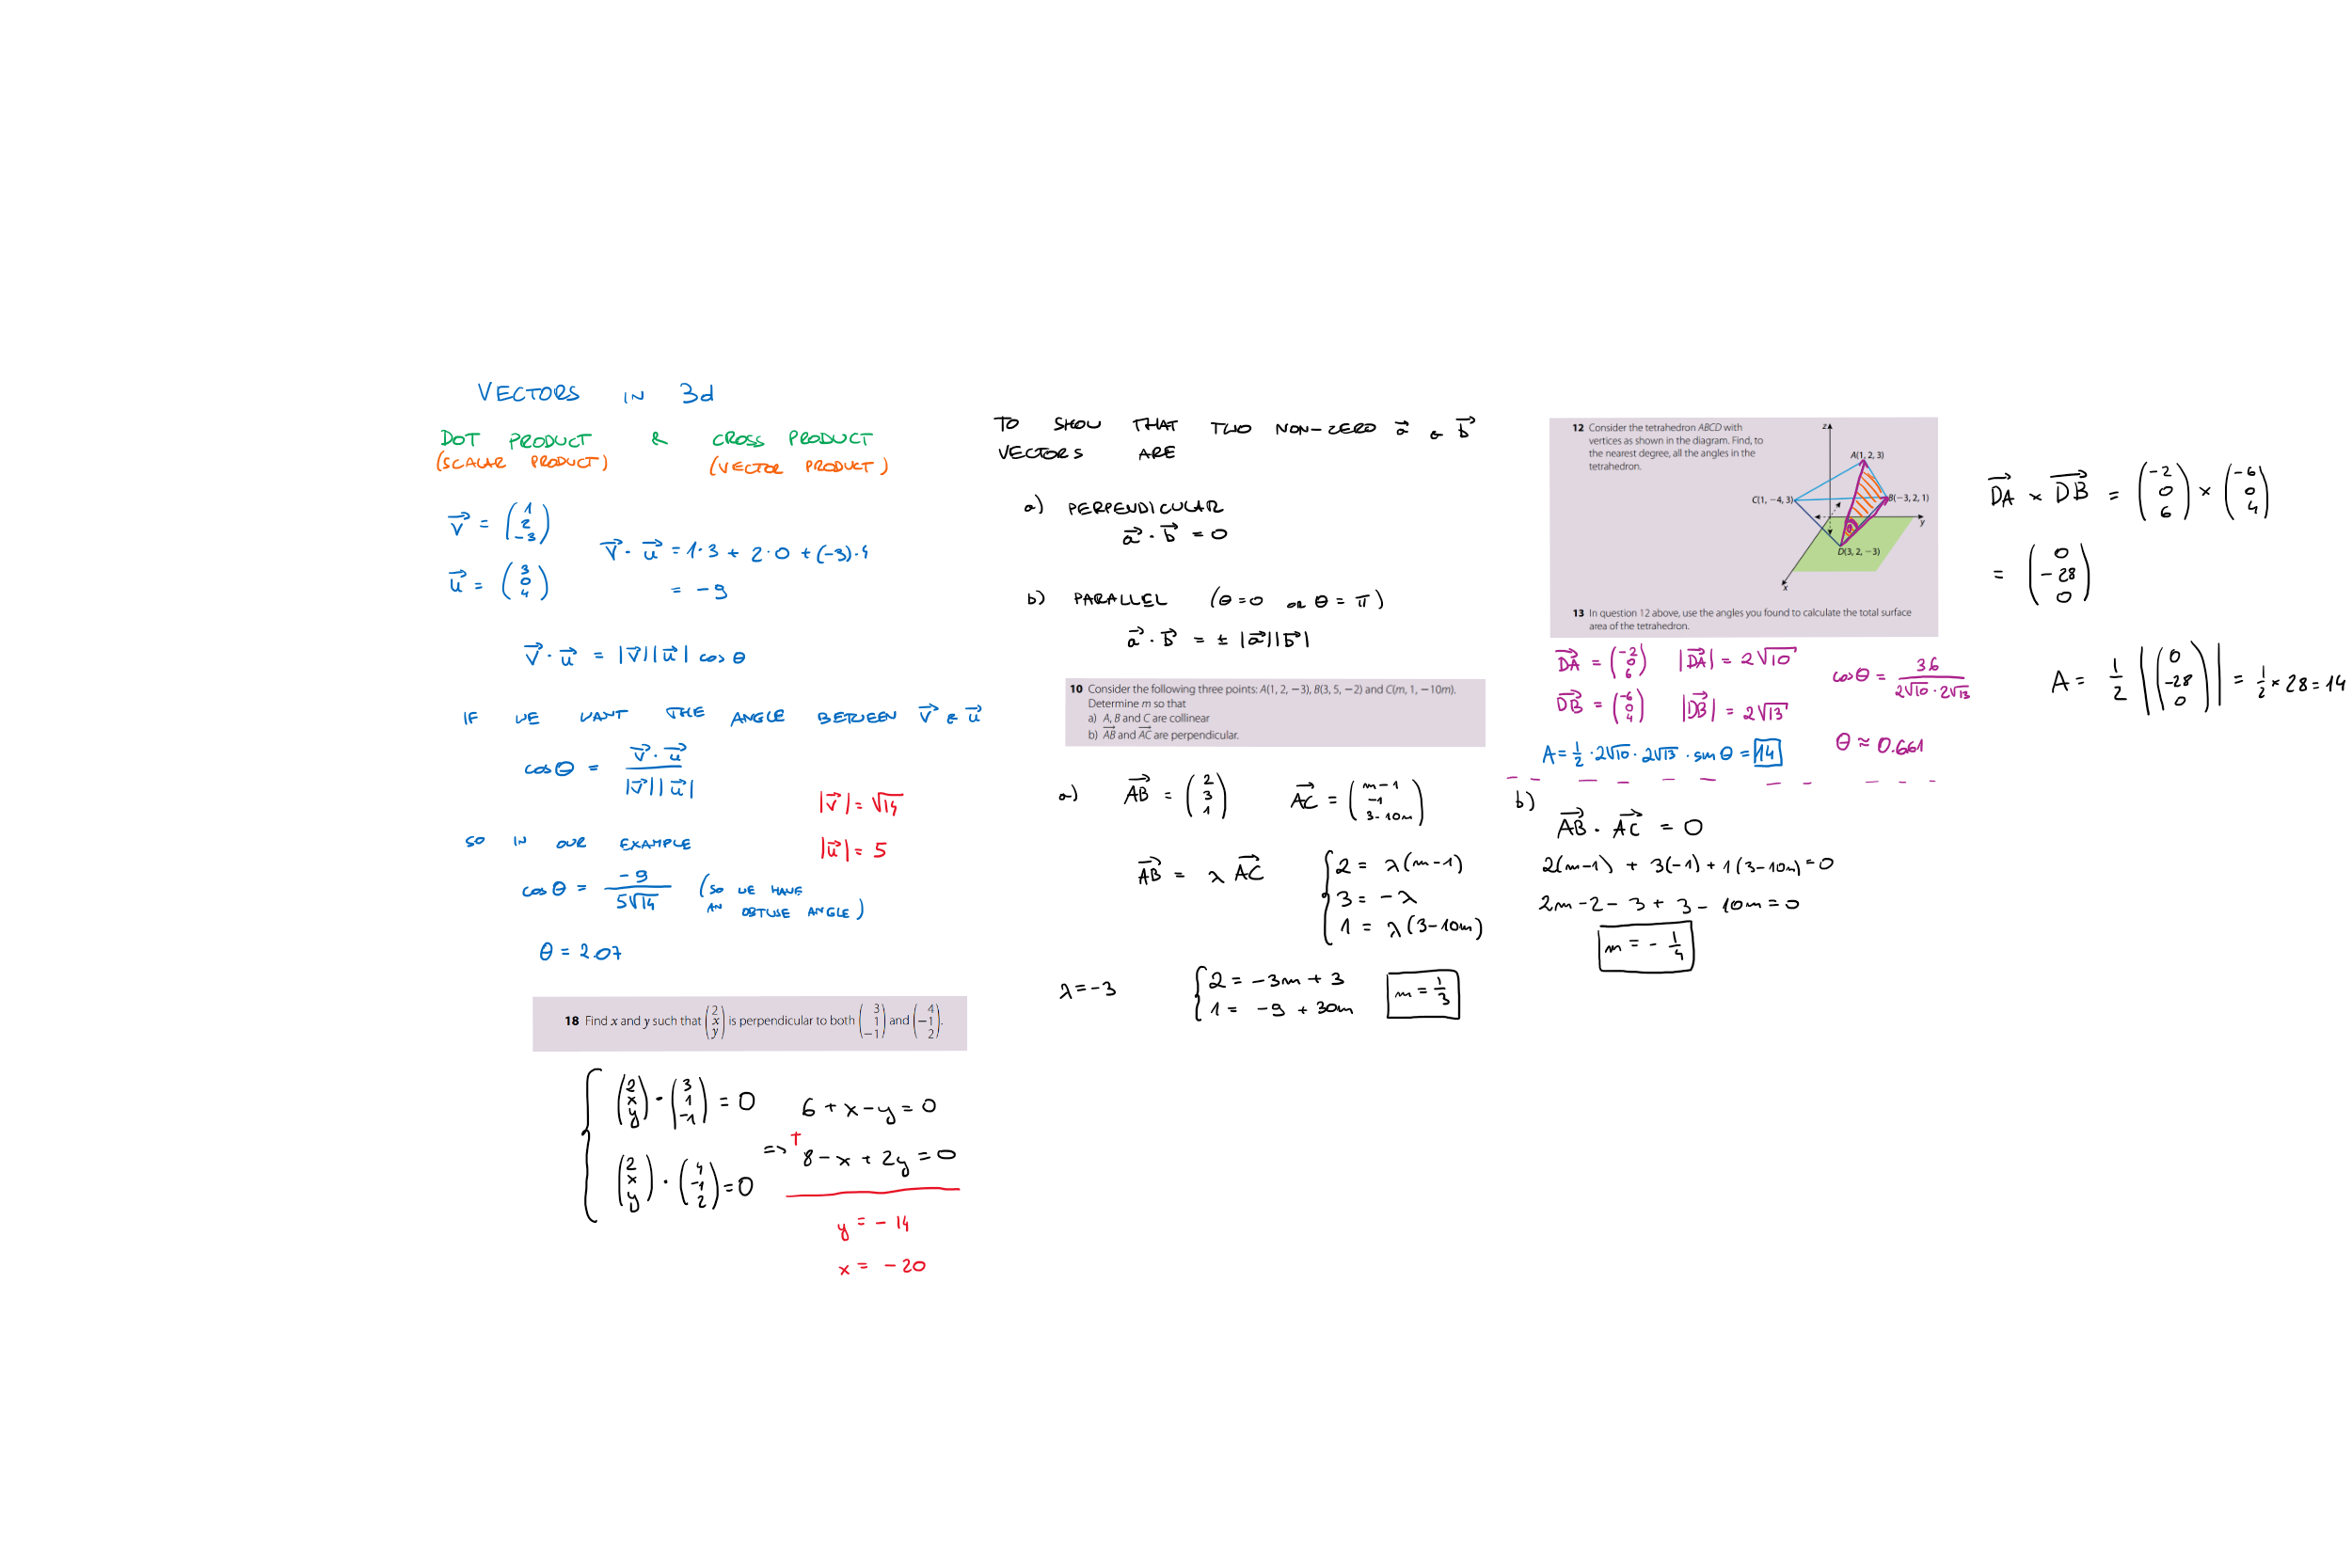 VECTORS IN 3d
DOT PRODUCT & CROSS PRODUCT
(SCALAR PRODUCT) (VECTOR PRODUCT)
v⃗ = (1 2 -3)
v⃗ · u⃗ = 1·3 + 2·0 + (-3)·4
u⃗ = (3 0 4)
= -9
v⃗ · u⃗ = |v⃗||u⃗| cos θ
IF WE WANT THE ANGLE BETWEEN v⃗ & u⃗
cos θ = v⃗ · u⃗ / |v⃗||u⃗|
|v⃗| = √14
|u⃗| = 5
SO IN OUR EXAMPLE
cos θ = -9 / 5√14 (SO WE HAVE
AN OBTUSE ANGLE)
θ = 2.07
18 Find x and y such that (2 x y) is perpendicular to both (3 1 −1) and (4 −1 2).
(2 x y) · (3 1 -1) = 0
6 + x - y = 0
(2 x y) · (4 -1 2) = 0
=> + 8 - x + 2y = 0
y = -14
x = -20
TO SHOW THAT TWO NON-ZERO a⃗ & b⃗
VECTORS ARE
a) PERPENDICULAR
a⃗ · b⃗ = 0
b) PARALLEL (θ = 0 OR θ = π)
a⃗ · b⃗ = ± |a⃗||b⃗|
10 Consider the following three points: A(1, 2, −3), B(3, 5, −2) and C(m, 1, −10m).
Determine m so that
a) A, B and C are collinear
b) AB⃗ and AC⃗ are perpendicular.
a) AB⃗ = (2 3 1) AC⃗ = (m-1 -1 3-10m)
AB⃗ = λ AC⃗
2 = λ(m-1)
3 = -λ
1 = λ(3-10m)
λ = -3
2 = -3m + 3
1 = -9 + 30m
m = 1/3
12 Consider the tetrahedron ABCD with
vertices as shown in the diagram. Find, to
the nearest degree, all the angles in the
tetrahedron.
z
A(1, 2, 3)
C(1, −4, 3)
B(−3, 2, 1)
y
D(3, 2, −3)
x
θ
13 In question 12 above, use the angles you found to calculate the total surface
area of the tetrahedron.
DA⃗ = (-2 0 6) |DA⃗| = 2√10
cos θ = 36 / 2√10 · 2√13
DB⃗ = (-6 0 4) |DB⃗| = 2√13
θ ≈ 0.661
A = 1/2 · 2√10 · 2√13 · sin θ = 14
b)
AB⃗ · AC⃗ = 0
2(m-1) + 3(-1) + 1(3-10m) = 0
2m - 2 - 3 + 3 - 10m = 0
m = - 1/4
DA⃗ × DB⃗ = (-2 0 6) × (-6 0 4)
= (0 -28 0)
A = 1/2 |(0 -28 0)| = 1/2 × 28 = 14